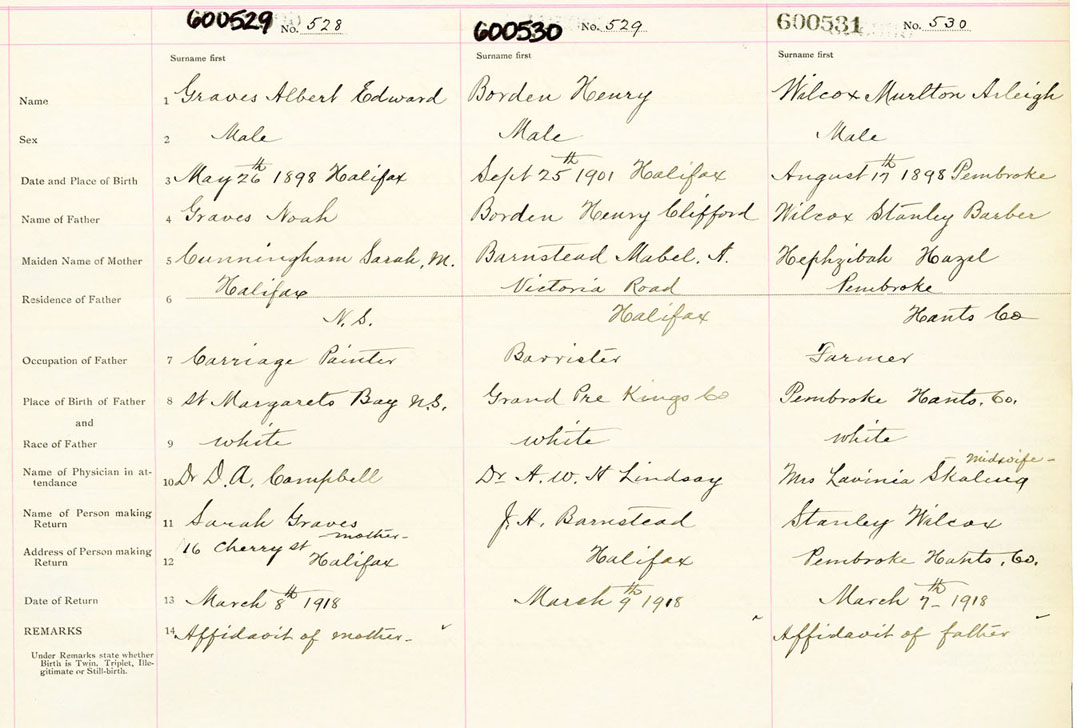 600529 No. 528 600530 No. 529 600531 No. 530
Surname first Surname first Surname first
Name 1 Graves Albert Edward Borden Henry Wilcox Murlton Arleigh
Sex 2 Male Male Male
Date and Place of Birth 3 May 26th 1898 Halifax Sept 25th 1901 Halifax August 17th 1898 Pembroke
Name of Father 4 Graves Noah Borden Henry Clifford Wilcox Stanley Barber
Maiden Name of Mother 5 Cunningham Sarah, M. Barnstead Mabel. A. Hephzibah Hazel
Residence of Father 6 Halifax Victoria Road Pembroke
N.S. Halifax Hants Co
Occupation of Father 7 Carriage Painter Barrister Farmer
Place of Birth of Father 8 St Margarets Bay N.S. Grand Pre Kings Co Pembroke Hants. Co.
and
Race of Father 9 white white white
midwife-
Name of Physician in at- 10 Dr D.A. Campbell Dr A. W. H Lindsay Mrs Lavinia Skaling
tendance
Name of Person making 11 Sarah Graves J. H. Barnstead Stanley Wilcox
Return mother-
Address of Person making 12 16 Cherry St Halifax Halifax Pembroke Hants. Co.
Return
Date of Return 13 March 8th 1918 March 9th 1918 March 7th- 1918
REMARKS 14 Affidavit of mother- Affidavit of father
Under Remarks state whether
Birth is Twin, Triplet, Ille-
gitimate or Still-birth.